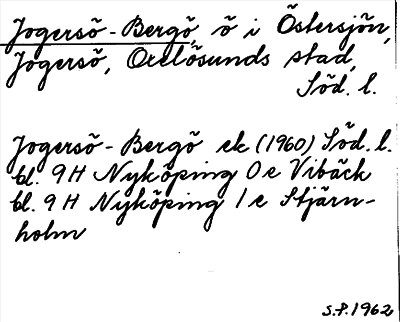 Jogersö-Bergö, ö i Östersjön,
Jogersö, Oxelösunds stad,
Söd. l.
Jogersö-Bergö ek (1960) Söd. l.
bl. 9H Nyköping 0e Vibäck
bl. 9H Nyköping 1e Stjärn-
holm
S.P. 1962